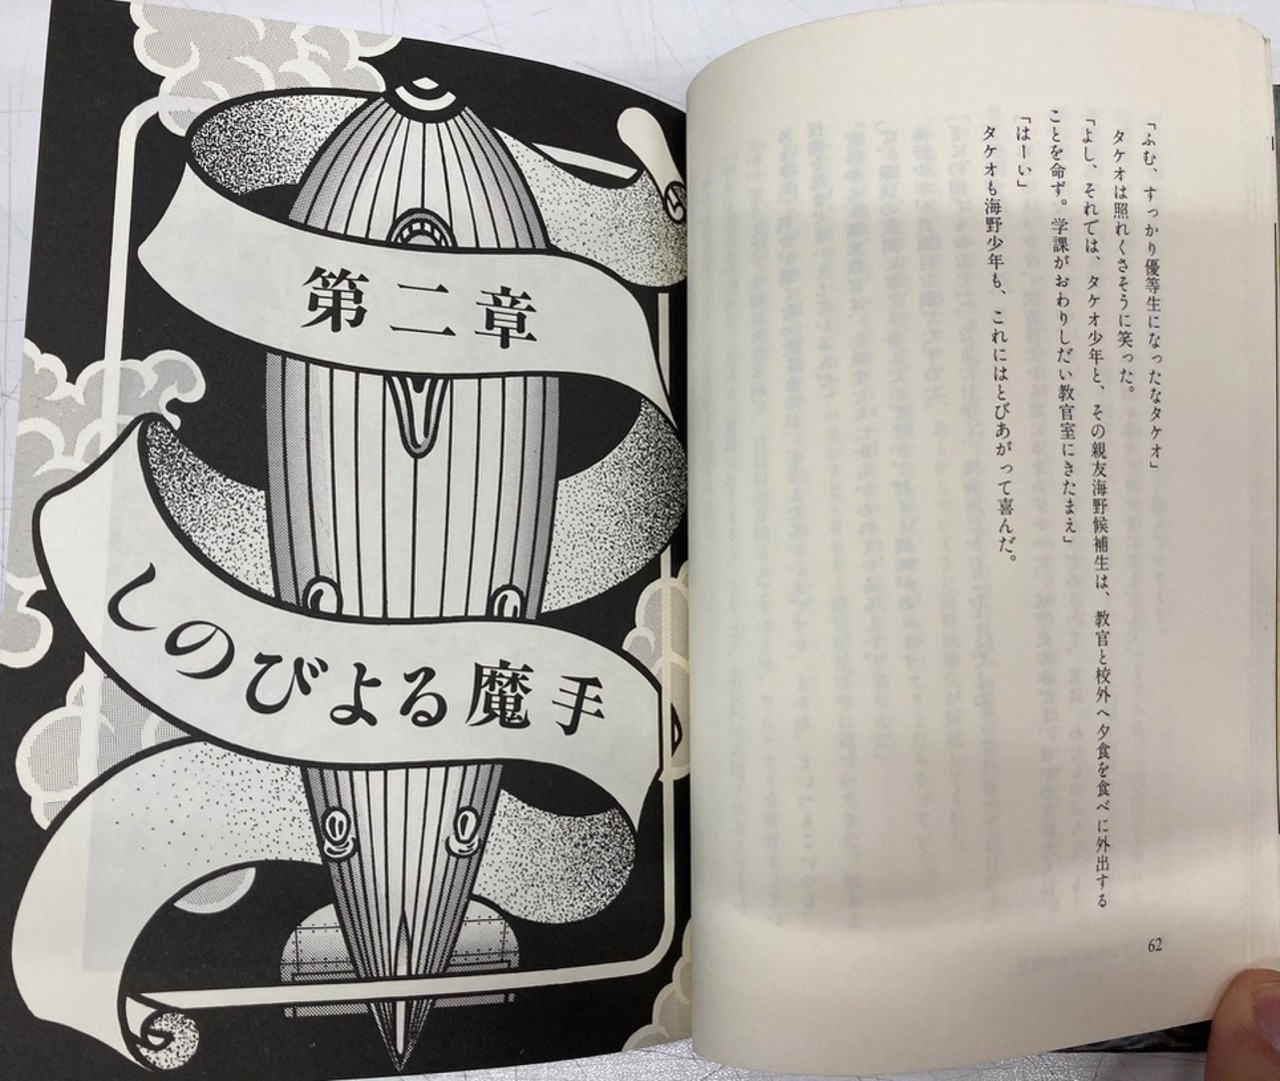 「ふむ、すっかり優等生になったなタケオ」
タケオは照れくさそうに笑った。
「よし、それでは、タケオ少年と、その親友海野候補生は、教官と校外へ夕食を食べに外出する
ことを命ず。学課がおわりしだい教官室にきたまえ」
「はーい」
タケオも海野少年も、これにはとびあがって喜んだ。
62
第二章
しのびよる魔手